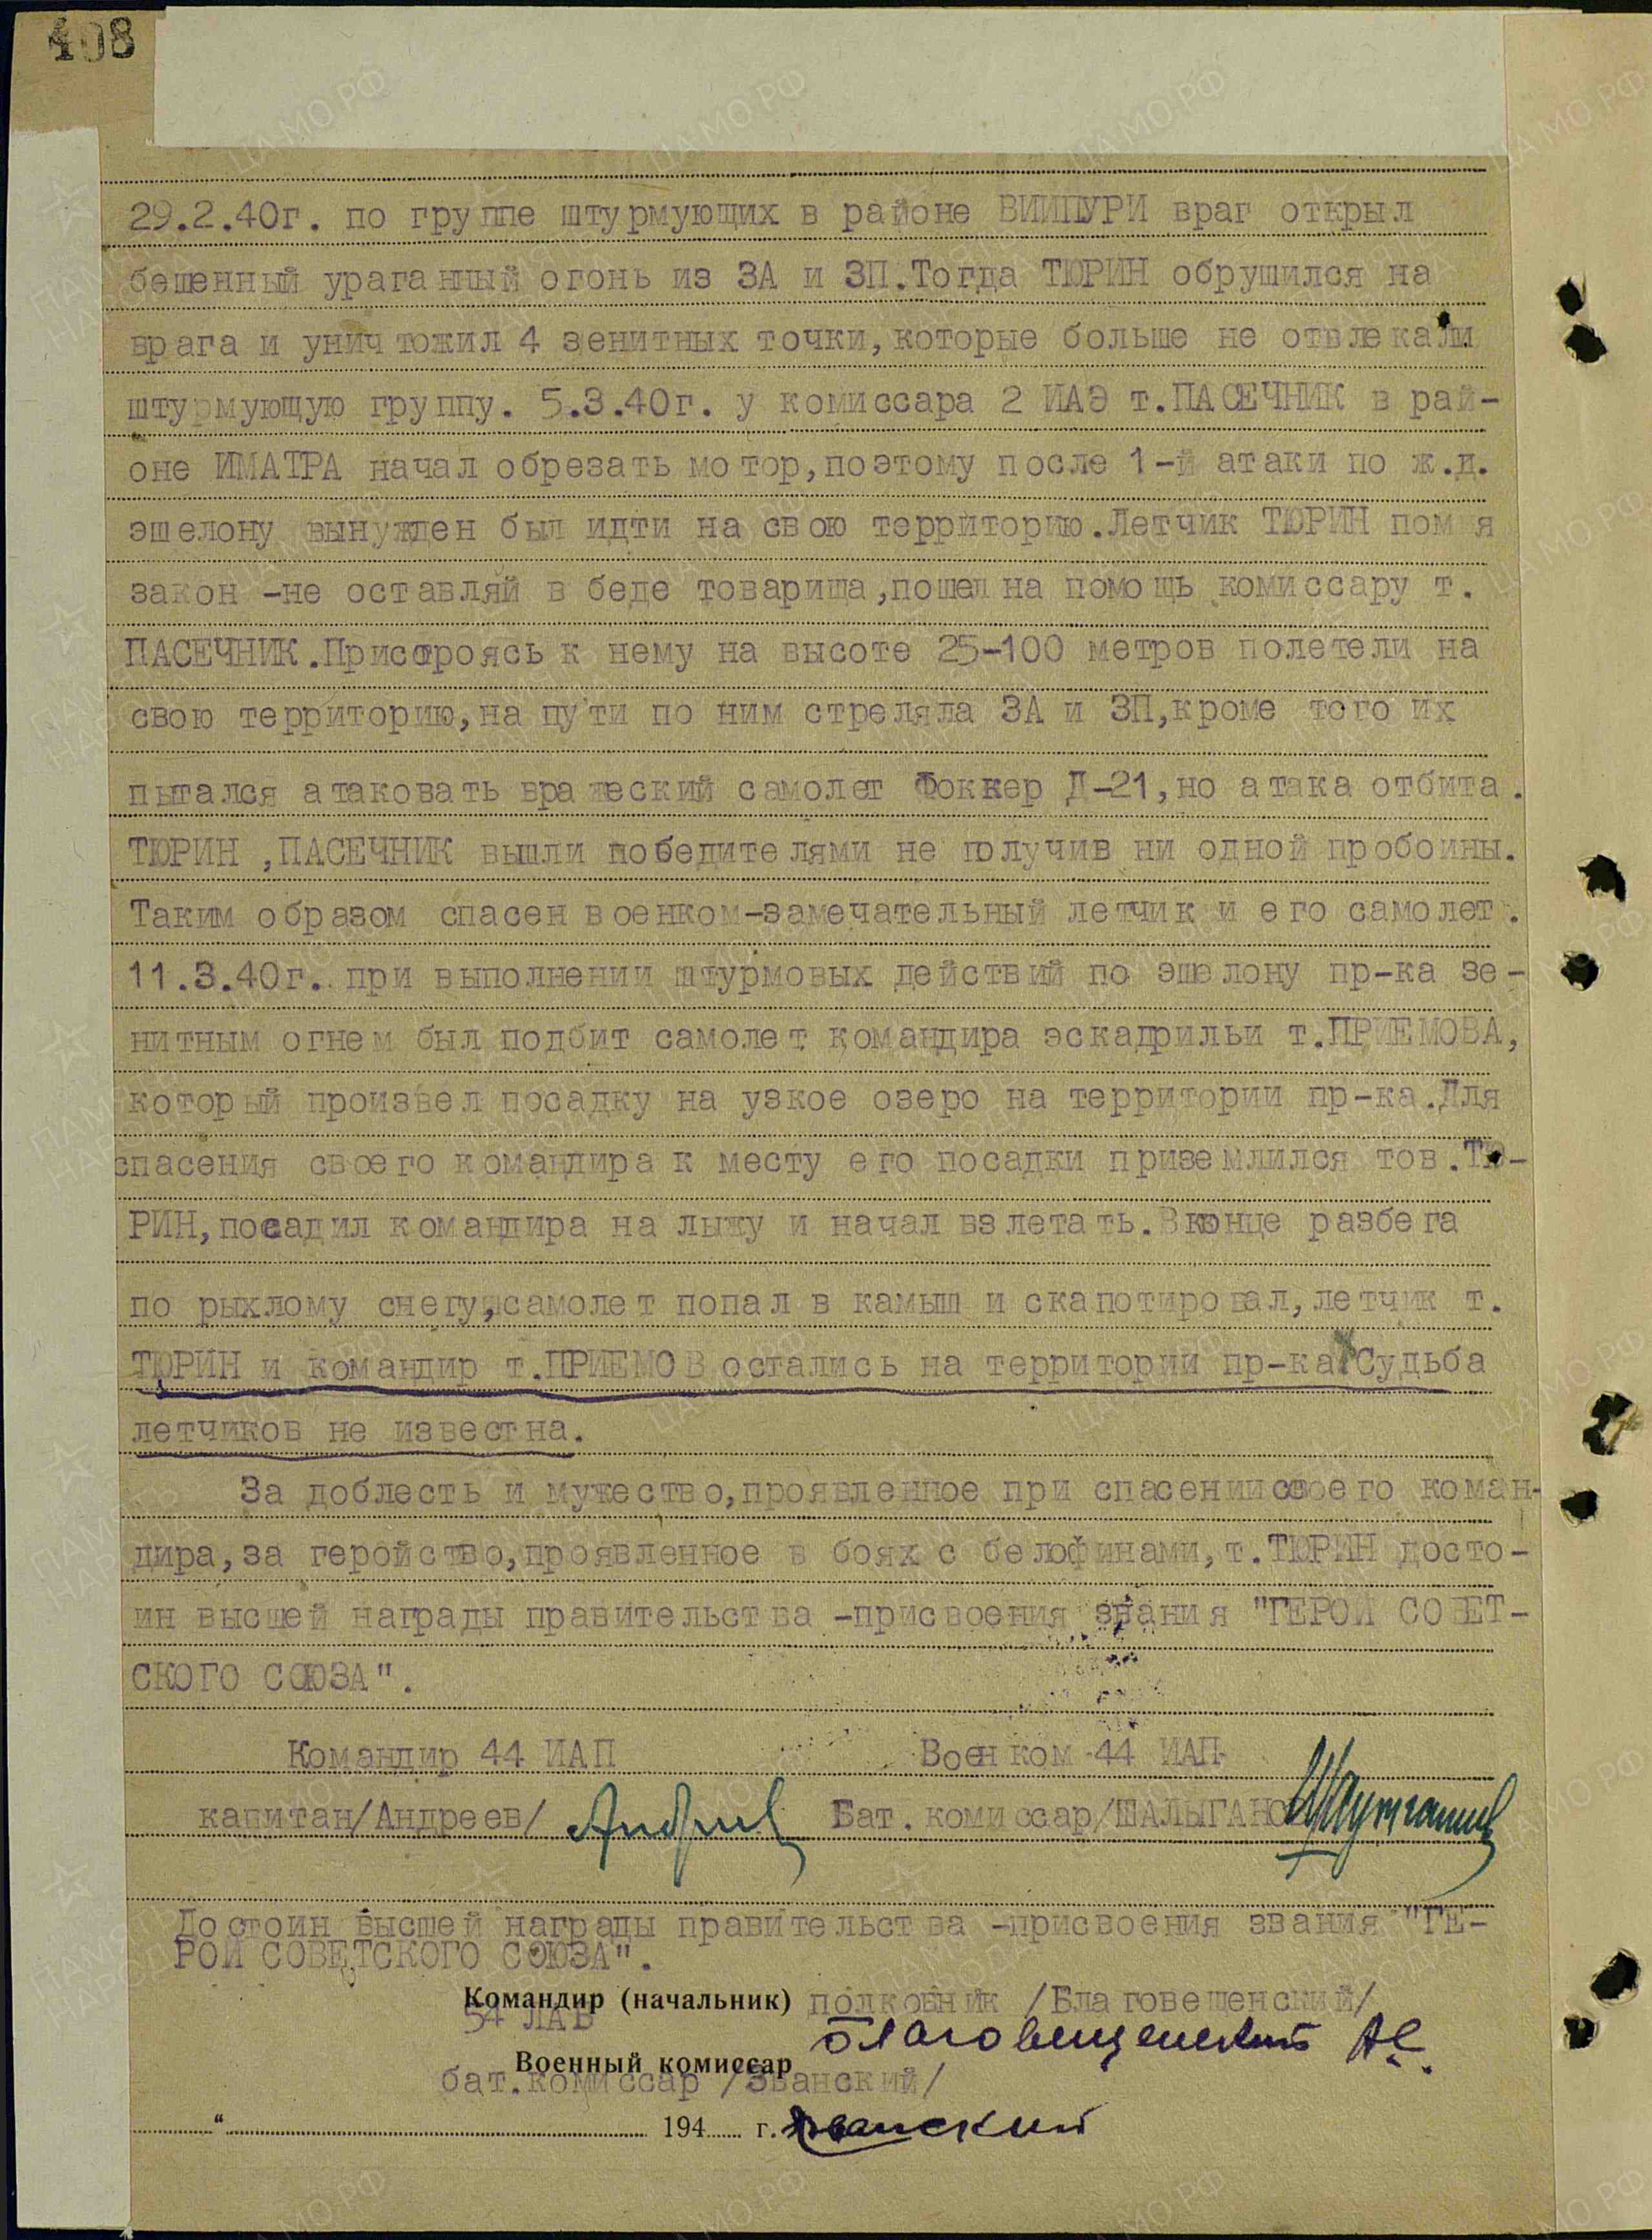 408
29.2.40г. по группе штурмующих в районе ВИИПУРИ враг открыл
бешенный ураганный огонь из ЗА и ЗП.Тогда ТЮРИН обрушился на
врага и уничтожил 4 зенитных точки,которые больше не отвлекали
штурмующую группу. 5.3.40г. у комиссара 2 ИАЭ т.ПАСЕЧНИК в рай-
оне ИМАТРА начал обрезать мотор,поэтому после 1-й атаки по ж.д.
эшелону вынужден был идти на свою территорию.Летчик ТЮРИН помня
закон -не оставляй в беде товарища,пошел на помощь комиссару т.
ПАСЕЧНИК.Пристроясь к нему на высоте 25-100 метров полетели на
свою территорию,на пути по ним стреляла ЗА и ЗП,кроме того их
пытался атаковать вражеский самолет Фоккер Д-21,но атака отбита.
ТЮРИН ,ПАСЕЧНИК вышли победителями не получив ни одной пробоины.
Таким образом спасен военком-замечательный летчик и его самолет.
11.3.40г. при выполнении штурмовых действий по эшелону пр-ка зе-
нитным огнем был подбит самолет командира эскадрильи т.ПРИЕМОВА,
который произвел посадку на узкое озеро на территории пр-ка.Для
спасения своего командира к месту его посадки приземлился тов.ТЮ-
РИН,посадил командира на лыжу и начал взлетать.В конце разбега
по рыхлому снегу,самолет попал в камыш и скапотировал,летчик т.
ТЮРИН и командир т.ПРИЕМОВ остались на территории пр-ка.Судьба
летчиков не известна.
За доблесть и мужество,проявленное при спасении своего коман-
дира,за геройство,проявленное в боях с белофинами,т.ТЮРИН досто-
ин высшей награды правительства -присвоения звания "ГЕРОЙ СОВЕТ-
СКОГО СОЮЗА".
Командир 44 ИАП Военком 44 ИАП
капитан/Андреев/ Андреев Бат.комиссар/ШАЛЫГАНОВ
Достоин высшей награды правительства -присвоения звания "ГЕ-
РОЙ СОВЕТСКОГО СОЮЗА".
Командир (начальник) полковник /Благовещенский/
54 ЛАБ
Благовещенский АС.
Военный комиссар
бат.комиссар /Званский/
" 194 г. Званский